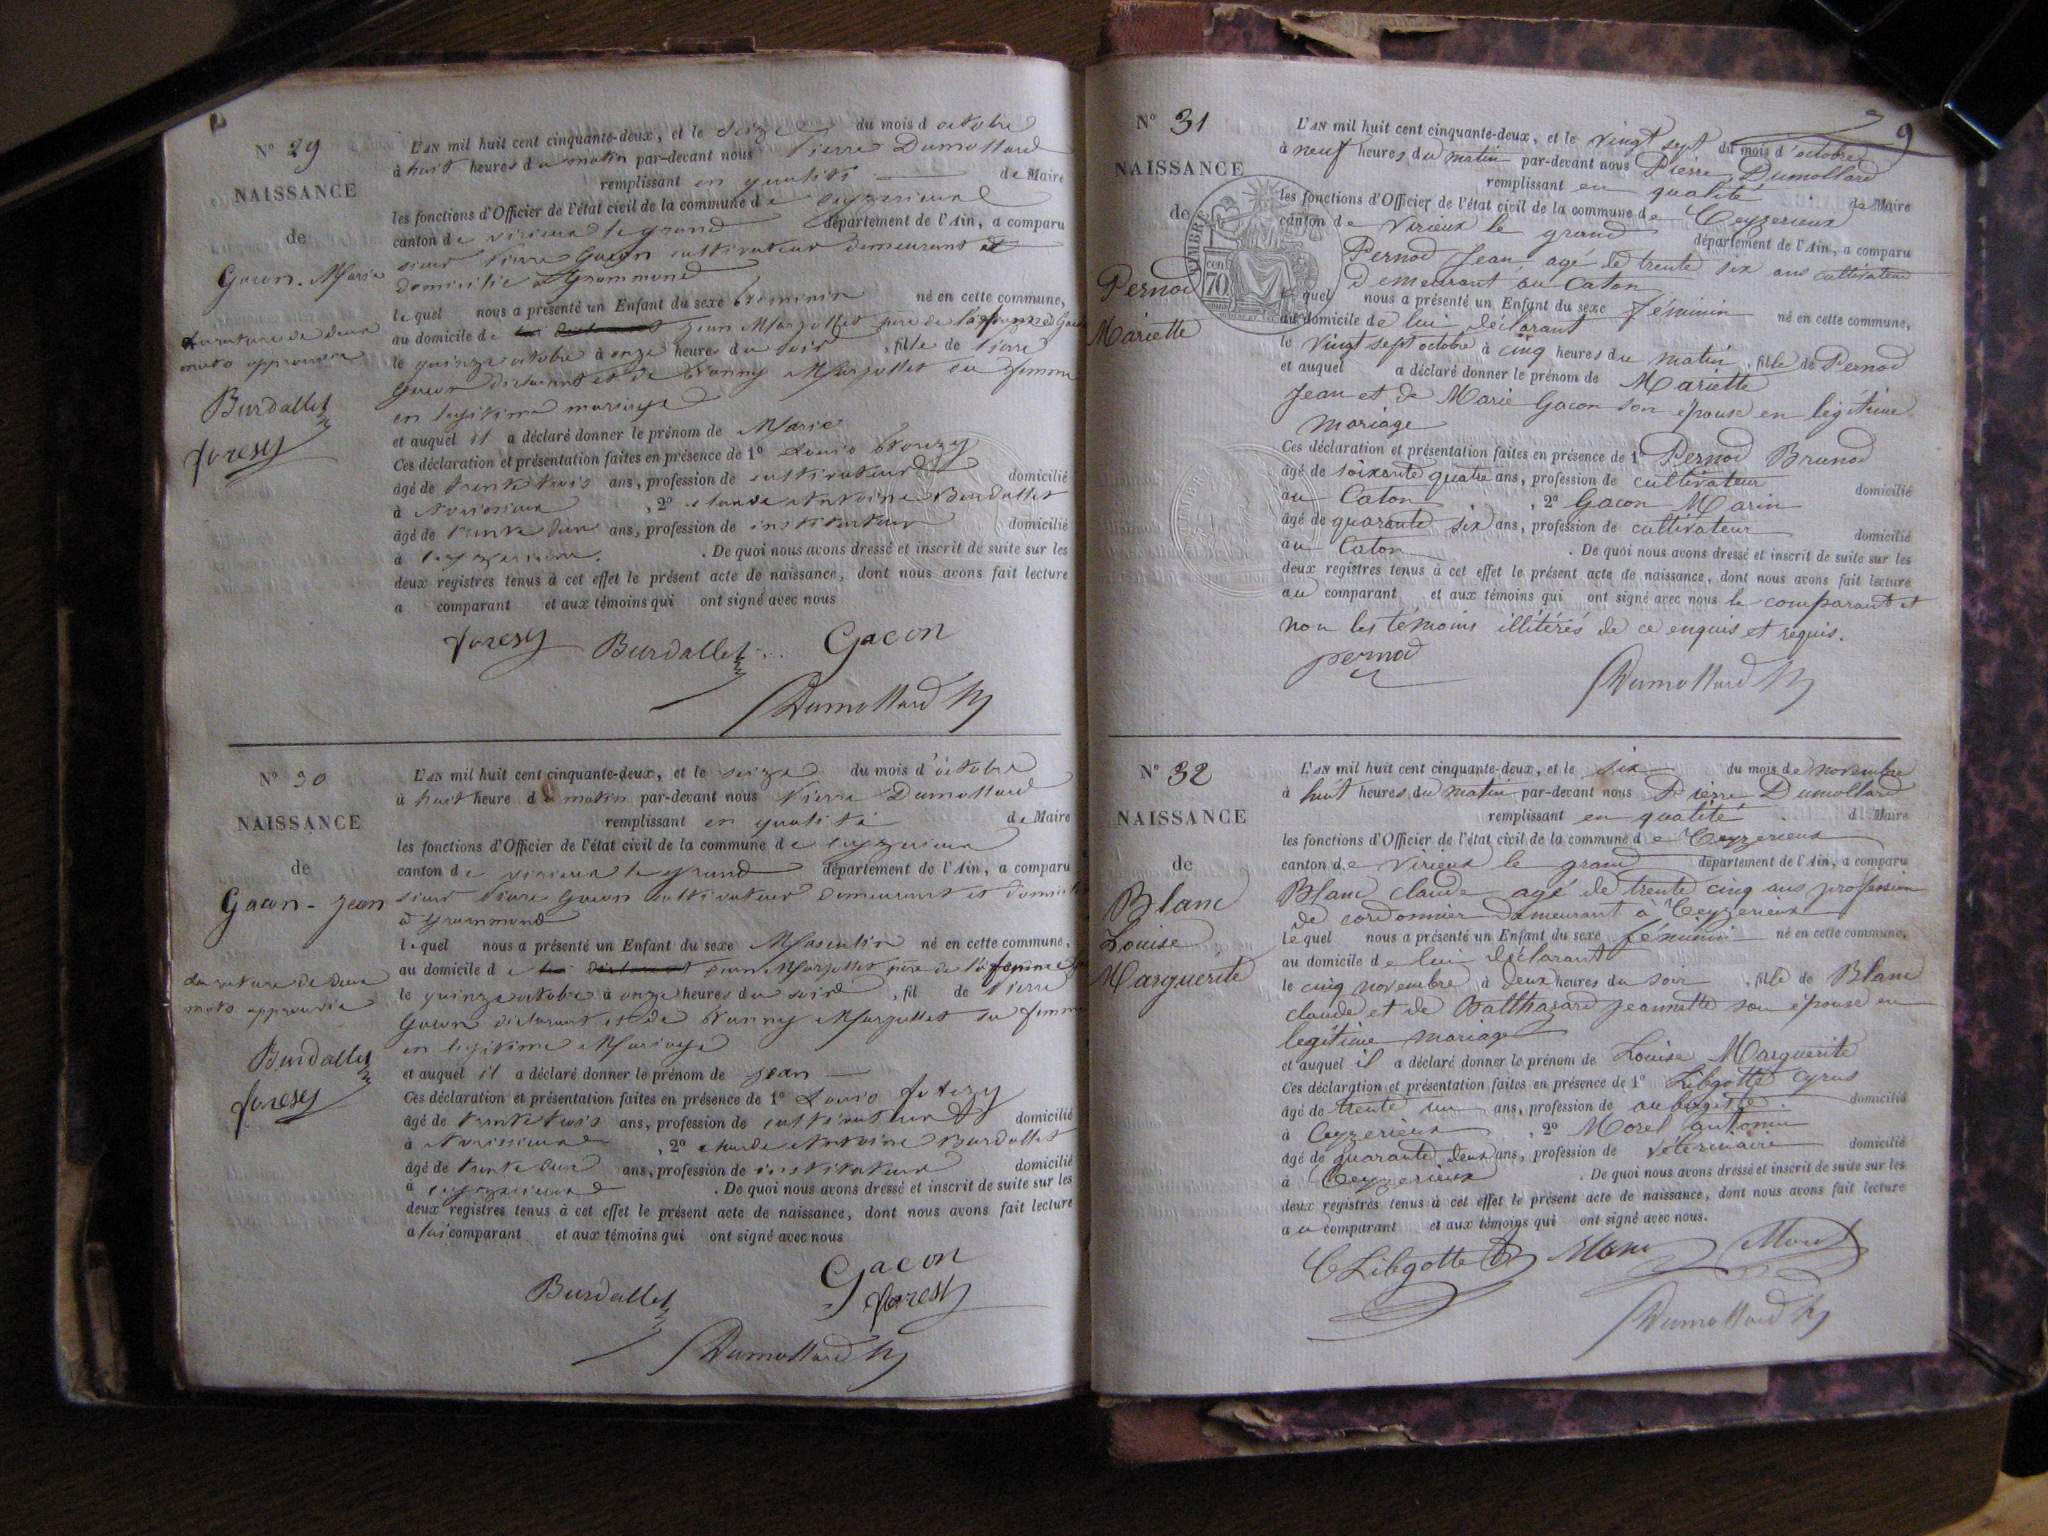 N° 29
NAISSANCE
de
Gacon. Marie
rature de deux
mots approuvée
Burdallet
foresy
L'AN mil huit cent cinquante-deux, et le seize du mois d octobre
à huit heures du matin par-devant nous Pierre Dumollard
remplissant en qualité de Maire
les fonctions d'Officier de l'état civil de la commune de ceyzerieux
canton de virieux le grand département de l'Ain, a comparu
sieur Pierre Gacon cultivateur demeurant et
domicilié à Grammond
lequel nous a présenté un Enfant du sexe feminin né en cette commune,
au domicile de jean Marjollet père de la femme
le quinze octobre à onze heures du soir, fille de Pierre
Gacon déclarant et de Fanny Marjollet sa femme
en legitime mariage
et auquel il a déclaré donner le prénom de Marie
Ces déclaration et présentation faites en présence de 1° Louis
âgé de trente trois ans, profession de cultivateur domicilié
à, 2° claude Antoine Burdallet
âgé de trente deux ans, profession de instituteur domicilié
à ceyzerieux. De quoi nous avons dressé et inscrit de suite sur les
deux registres tenus à cet effet le présent acte de naissance, dont nous avons fait lecture
a comparant et aux témoins qui ont signé avec nous
foresy Burdallet Gacon
Dumollard
N° 30
NAISSANCE
de
Gacon - jean
la rature de deux
mots approuvée
Burdallet
foresy
L'AN mil huit cent cinquante-deux, et le seize du mois d'octobre
à huit heure du matin par-devant nous Pierre Dumollard
remplissant en qualité de Maire
les fonctions d'Officier de l'état civil de la commune de ceyzerieux
canton de virieux le grand département de l'Ain, a comparu
sieur Pierre Gacon cultivateur demeurant et domicilié
à Grammond
lequel nous a présenté un Enfant du sexe Masculin né en cette commune,
au domicile de jean Marjollet père de la femme
le quinze octobre à onze heures du soir, fil de Pierre
Gacon déclarant et de Fanny Marjollet sa femme
en legitime Mariage
et auquel il a déclaré donner le prénom de jean
Ces déclaration et présentation faites en présence de 1° Louis
âgé de trente trois ans, profession de cultivateur domicilié
à, 2° claude Antoine Burdallet
âgé de trente deux ans, profession de instituteur domicilié
à ceyzerieux. De quoi nous avons dressé et inscrit de suite sur les
deux registres tenus à cet effet le présent acte de naissance, dont nous avons fait lecture
a lui comparant et aux témoins qui ont signé avec nous
Gacon
Burdallet foresy
Dumollard
9
N° 31
NAISSANCE
de
Pernod
Mariette
TIMBRE
70 cent
L'AN mil huit cent cinquante-deux, et le vingt sept du mois d'octobre
à neuf heures du matin par-devant nous Pierre Dumollard
remplissant en qualité de Maire
les fonctions d'Officier de l'état civil de la commune de Ceyzerieux
canton de Virieux le grand département de l'Ain, a comparu
Pernod Jean agé de trente six ans cultivateur
Demeurant au Caton
lequel nous a présenté un Enfant du sexe féminin né en cette commune,
au domicile de lui déclarant
le vingt sept octobre à cinq heures du matin, fille de Pernod
et auquel a déclaré donner le prénom de Mariette
Jean et de Marie Gacon son épouse en légitime
mariage
Ces déclaration et présentation faites en présence de 1° Pernod Brunod
âgé de soixante quatre ans, profession de cultivateur domicilié
au Caton, 2° Gacon Marin
âgé de quarante six ans, profession de cultivateur domicilié
au Caton. De quoi nous avons dressé et inscrit de suite sur les
deux registres tenus à cet effet le présent acte de naissance, dont nous avons fait lecture
au comparant et aux témoins qui ont signé avec nous le comparant et
non les témoins illitérés de ce enquis et requis.
pernod
Dumollard
N° 32
NAISSANCE
de
Blanc
Louise
Marguerite
L'AN mil huit cent cinquante-deux, et le six du mois de novembre
à huit heures du matin par-devant nous Pierre Dumollard
remplissant en qualité d Maire
les fonctions d'Officier de l'état civil de la commune de Ceyzerieux
canton de Virieux le grand département de l'Ain, a comparu
Blanc claude agé de trente cinq ans profession
de cordonnier demeurant à Ceyzerieux
lequel nous a présenté un Enfant du sexe féminin né en cette commune,
au domicile de lui déclarant
le cinq novembre à deux heures du soir, fille de Blanc
claude et de Balthazard jeannette son épouse en
legitime mariage
et auquel il a déclaré donner le prénom de Louise Marguerite
Ces déclaration et présentation faites en présence de 1° Libgotte Cyrus
âgé de trente un ans, profession de aubergiste domicilié
à Ceyzerieux, 2° Morel antonin
âgé de quarante deux ans, profession de véterinaire domicilié
à Ceyzerieux. De quoi nous avons dressé et inscrit de suite sur les
deux registres tenus à cet effet le présent acte de naissance, dont nous avons fait lecture
au comparant et aux témoins qui ont signé avec nous.
C Libgotte Blanc Morel
Dumollard